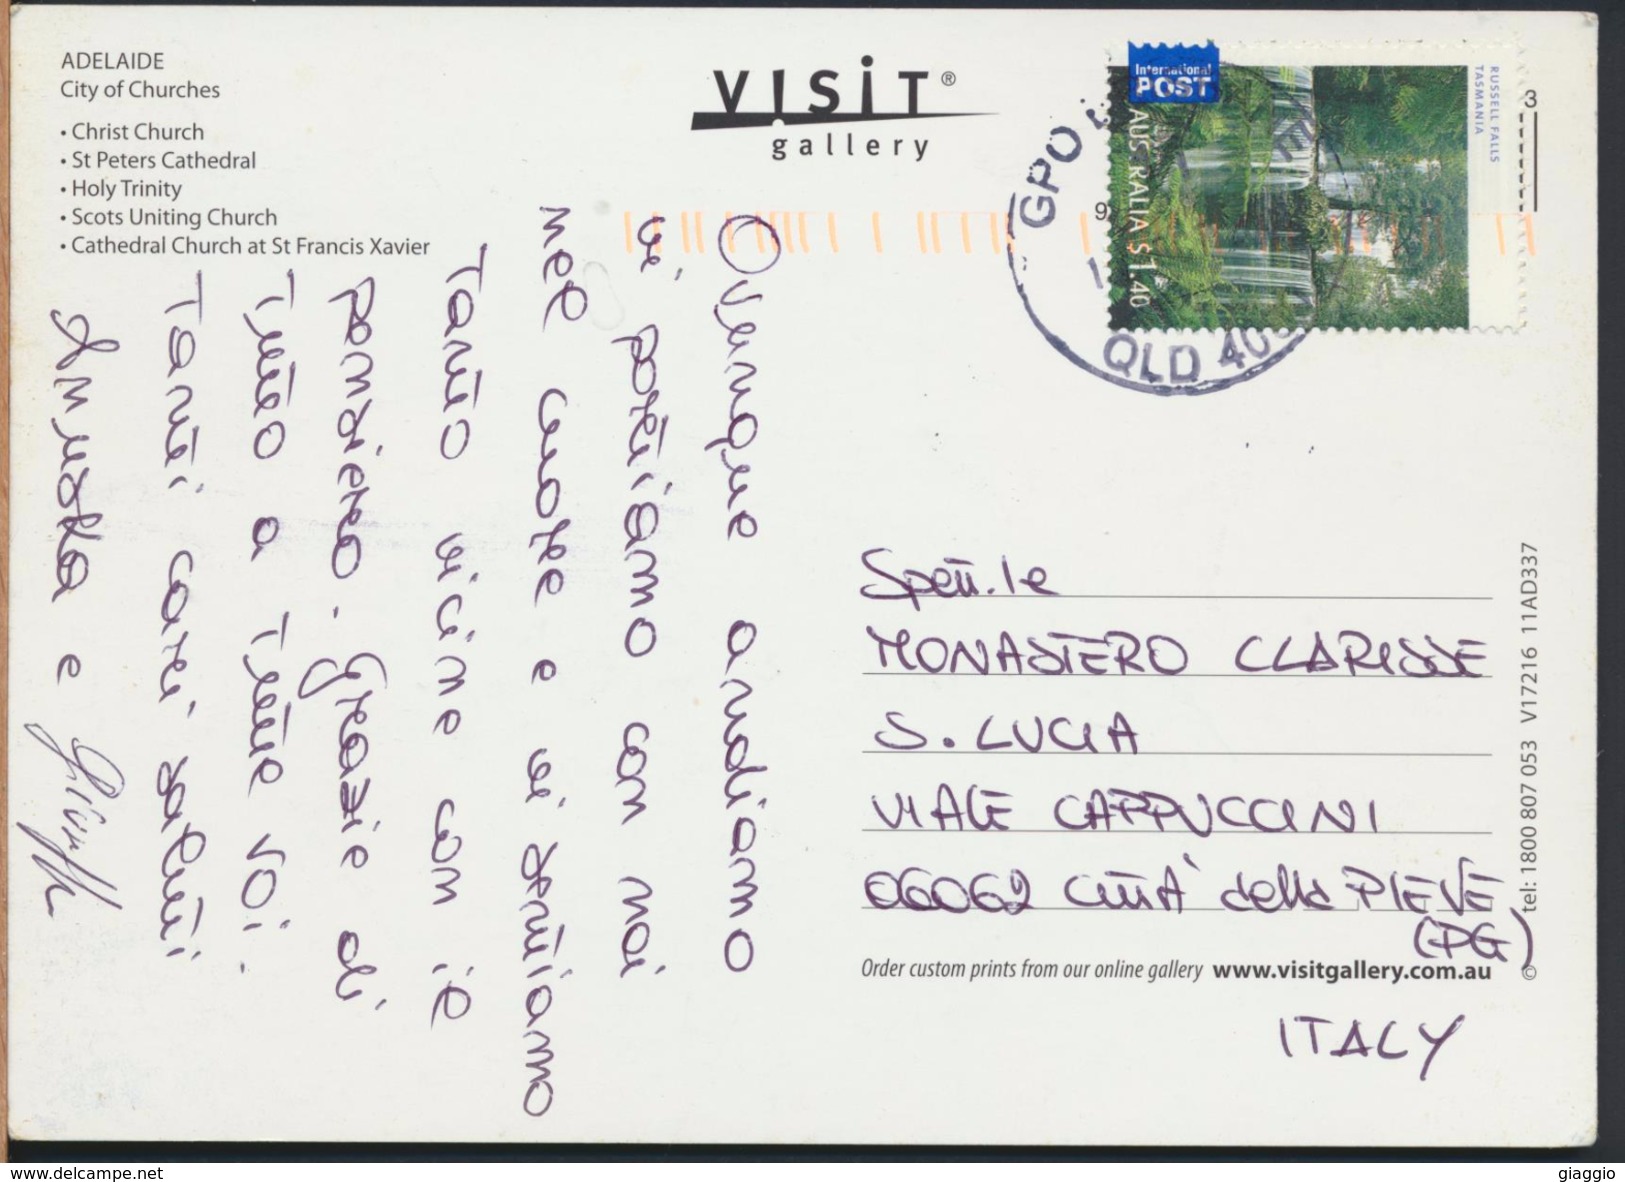 ADELAIDE
City of Churches
• Christ Church
• St Peters Cathedral
• Holy Trinity
• Scots Uniting Church
• Cathedral Church at St Francis Xavier
VISIT®
gallery
International
POST
AUSTRALIA $1.40
RUSSELL FALLS
TASMANIA
3
9
GPO
QLD 400
Ovunque andiamo
vi portiamo con noi
nel cuore e vi sentiamo
tanto vicine con il
pensiero. Grazie di
tutto a tutte voi.
Tanti cari saluti
e
Spett.le
MONASTERO CLARISSE
S. LUCIA
VIALE CAPPUCCINI
06062 CITTA' della PIEVE
(PG)
ITALY
Order custom prints from our online gallery www.visitgallery.com.au
tel: 1800 807 053 V17216 11AD337
©
www.delcampe.net
giaggio